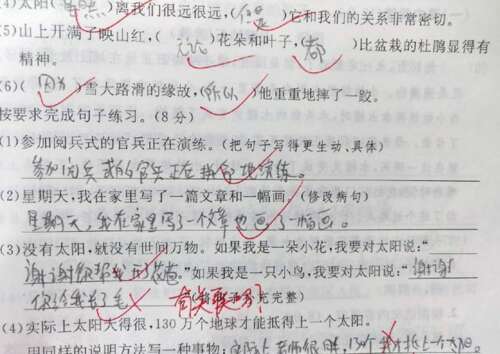 (4)太阳(虽然)离我们很远很远,(但是)它和我们的关系非常密切。
(5)山上开满了映山红,(无论)花朵和叶子,(都)比盆栽的杜鹃显得有
精神。
(6)(因为)雪大路滑的缘故,(所以)他重重地摔了一跤。
按要求完成句子练习。(8分)
(1)参加阅兵式的官兵正在演练。(把句子写得更生动、具体)
参加阅兵式的官兵正在地演练。
(2)星期天,我在家里写了一篇文章和一幅画。(修改病句)
星期天,我在家里写了一个文章也画了一幅画。
(3)没有太阳,就没有世间万物。如果我是一朵小花,我要对太阳说:“
谢谢你帮我。”如果我是一只小鸟,我要对太阳说:“谢谢
你给我 (将句子补充完整)
有关联吗?
(4)实际上太阳大得很,130万个地球才能抵得上一个太阳。
用同样的说明方法写一种事物: